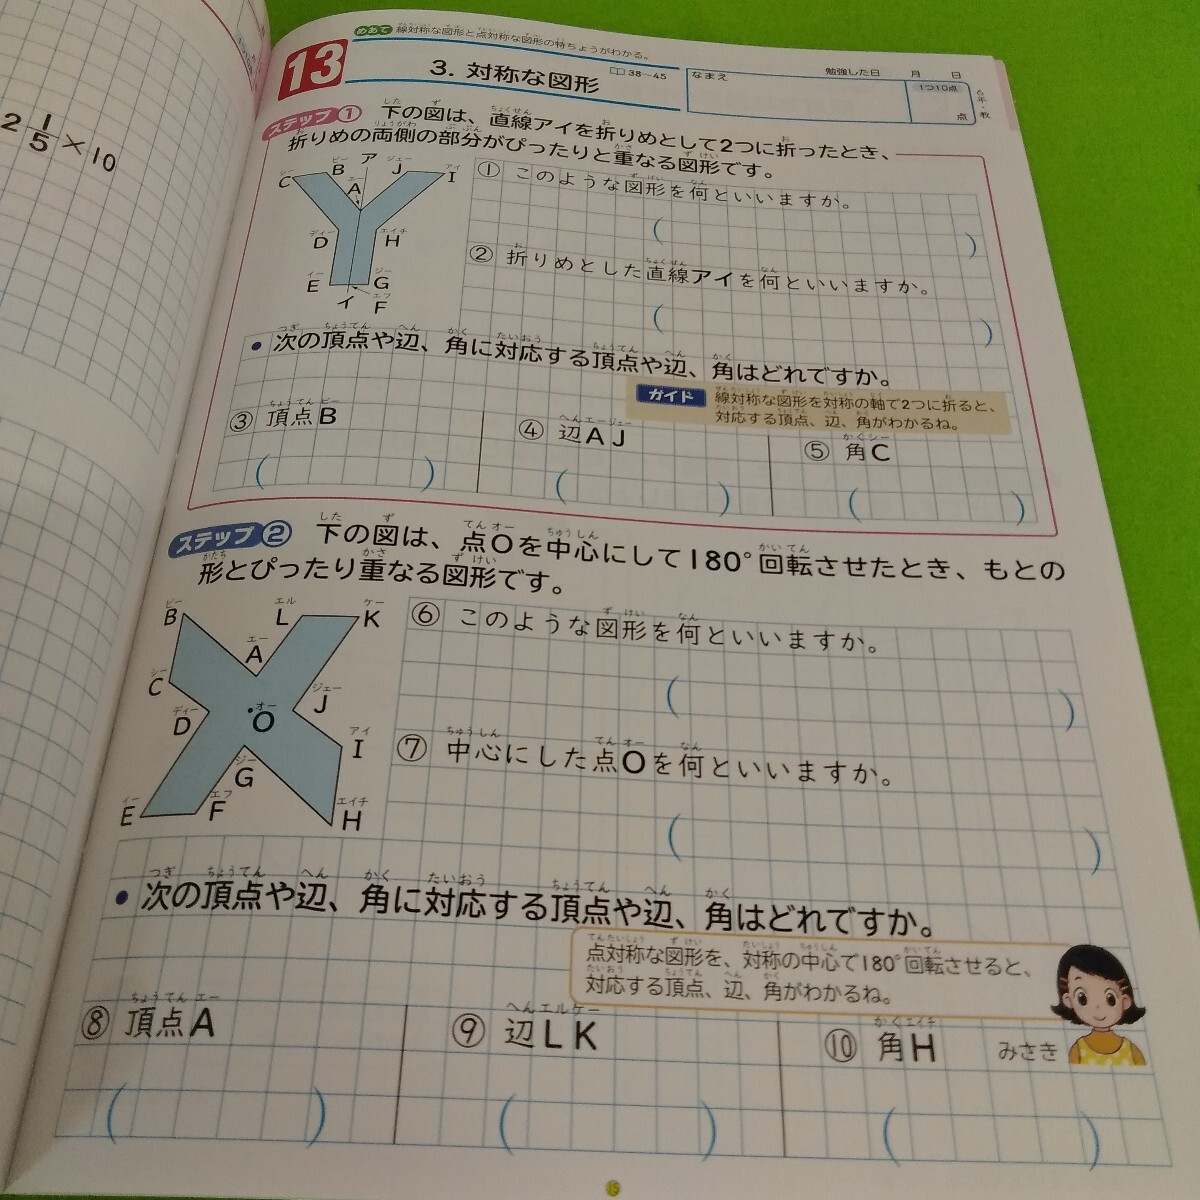 2 1/5 × 10
めあて 線対称な図形と点対称な図形の特ちょうがわかる。
13
3. 対称な図形
38〜45
なまえ
勉強した日 月 日
1つ10点
点
6年・教
ステップ1 下の図は、直線アイを折りめとして2つに折ったとき、
折りめの両側の部分がぴったりと重なる図形です。
C B ア J I
A
D H
E G
イ F
① このような図形を何といいますか。
( )
② 折りめとした直線アイを何といいますか。
( )
• 次の頂点や辺、角に対応する頂点や辺、角はどれですか。
ガイド 線対称な図形を対称の軸で2つに折ると、
対応する頂点、辺、角がわかるね。
③ 頂点B
④ 辺AJ
⑤ 角C
( ) ( ) ( )
ステップ2 下の図は、点Oを中心にして180°回転させたとき、もとの
形とぴったり重なる図形です。
B L K
A
C J
D O
I
G
E F H
⑥ このような図形を何といいますか。
( )
⑦ 中心にした点Oを何といいますか。
( )
• 次の頂点や辺、角に対応する頂点や辺、角はどれですか。
点対称な図形を、対称の中心で180°回転させると、
対応する頂点、辺、角がわかるね。
みさき
⑧ 頂点A
⑨ 辺LK
⑩ 角H
( ) ( ) ( )
15